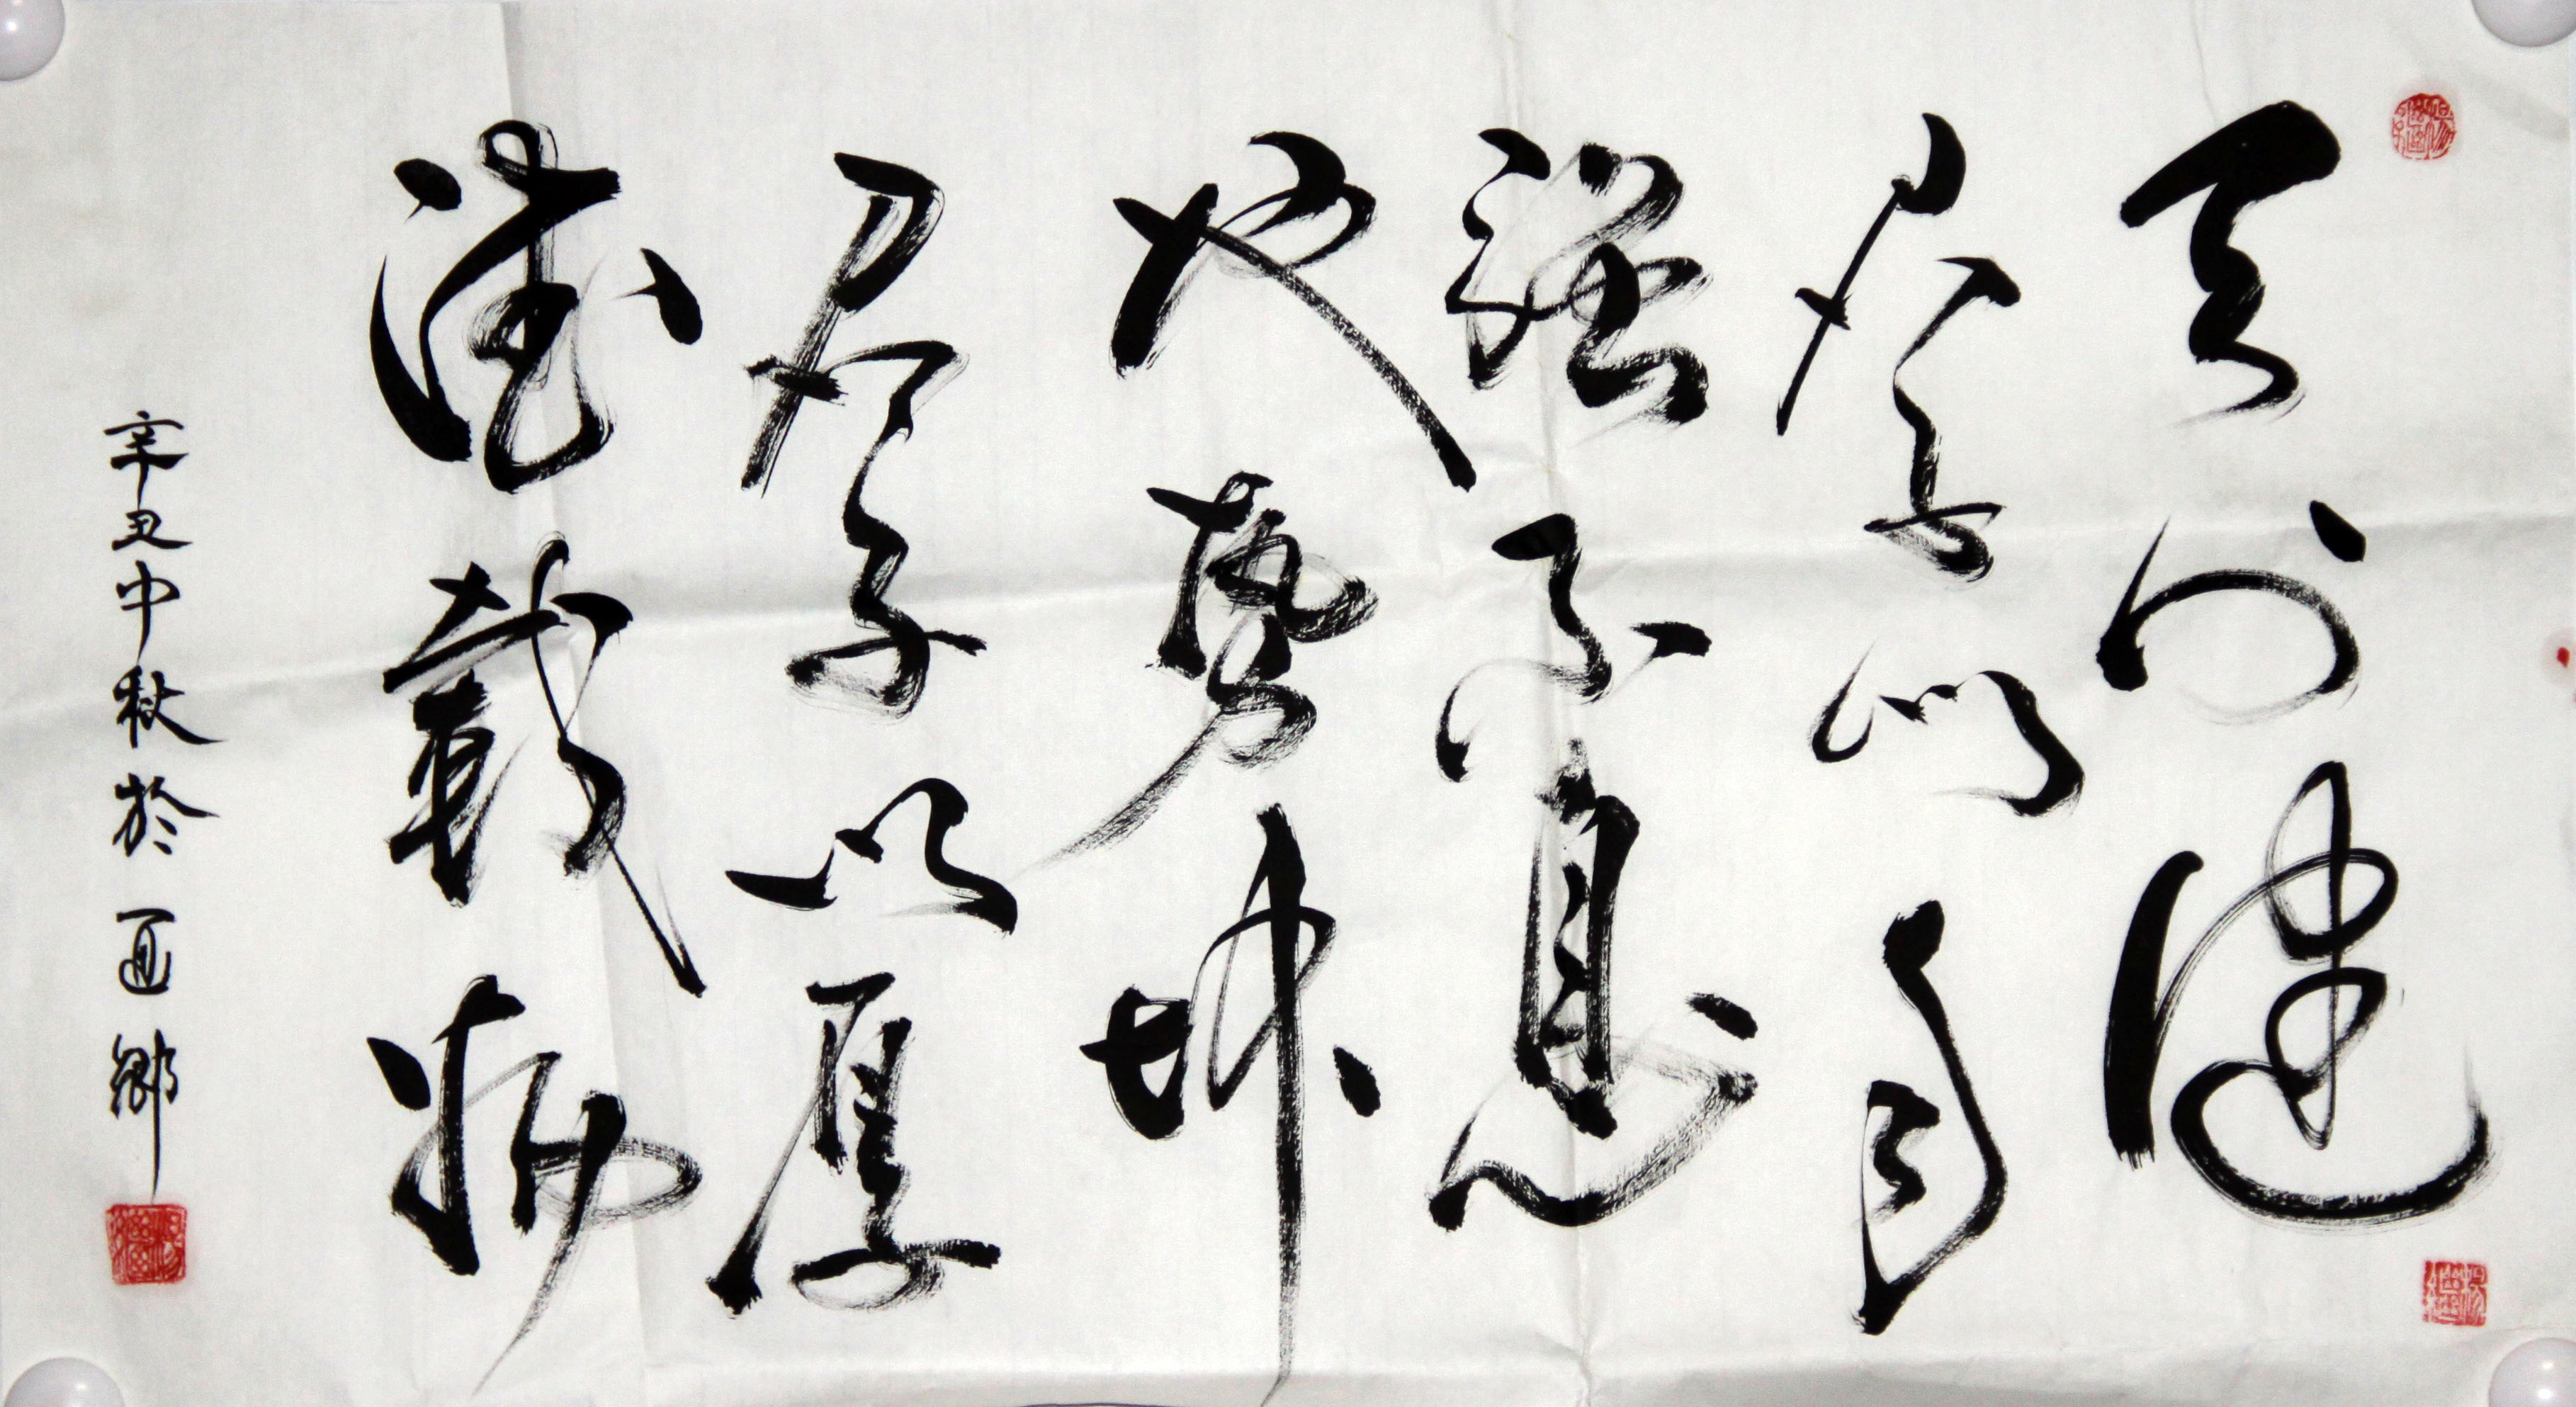 天行健
君子以自
強不息
地勢坤
君子以厚
德載物
辛丑中秋於